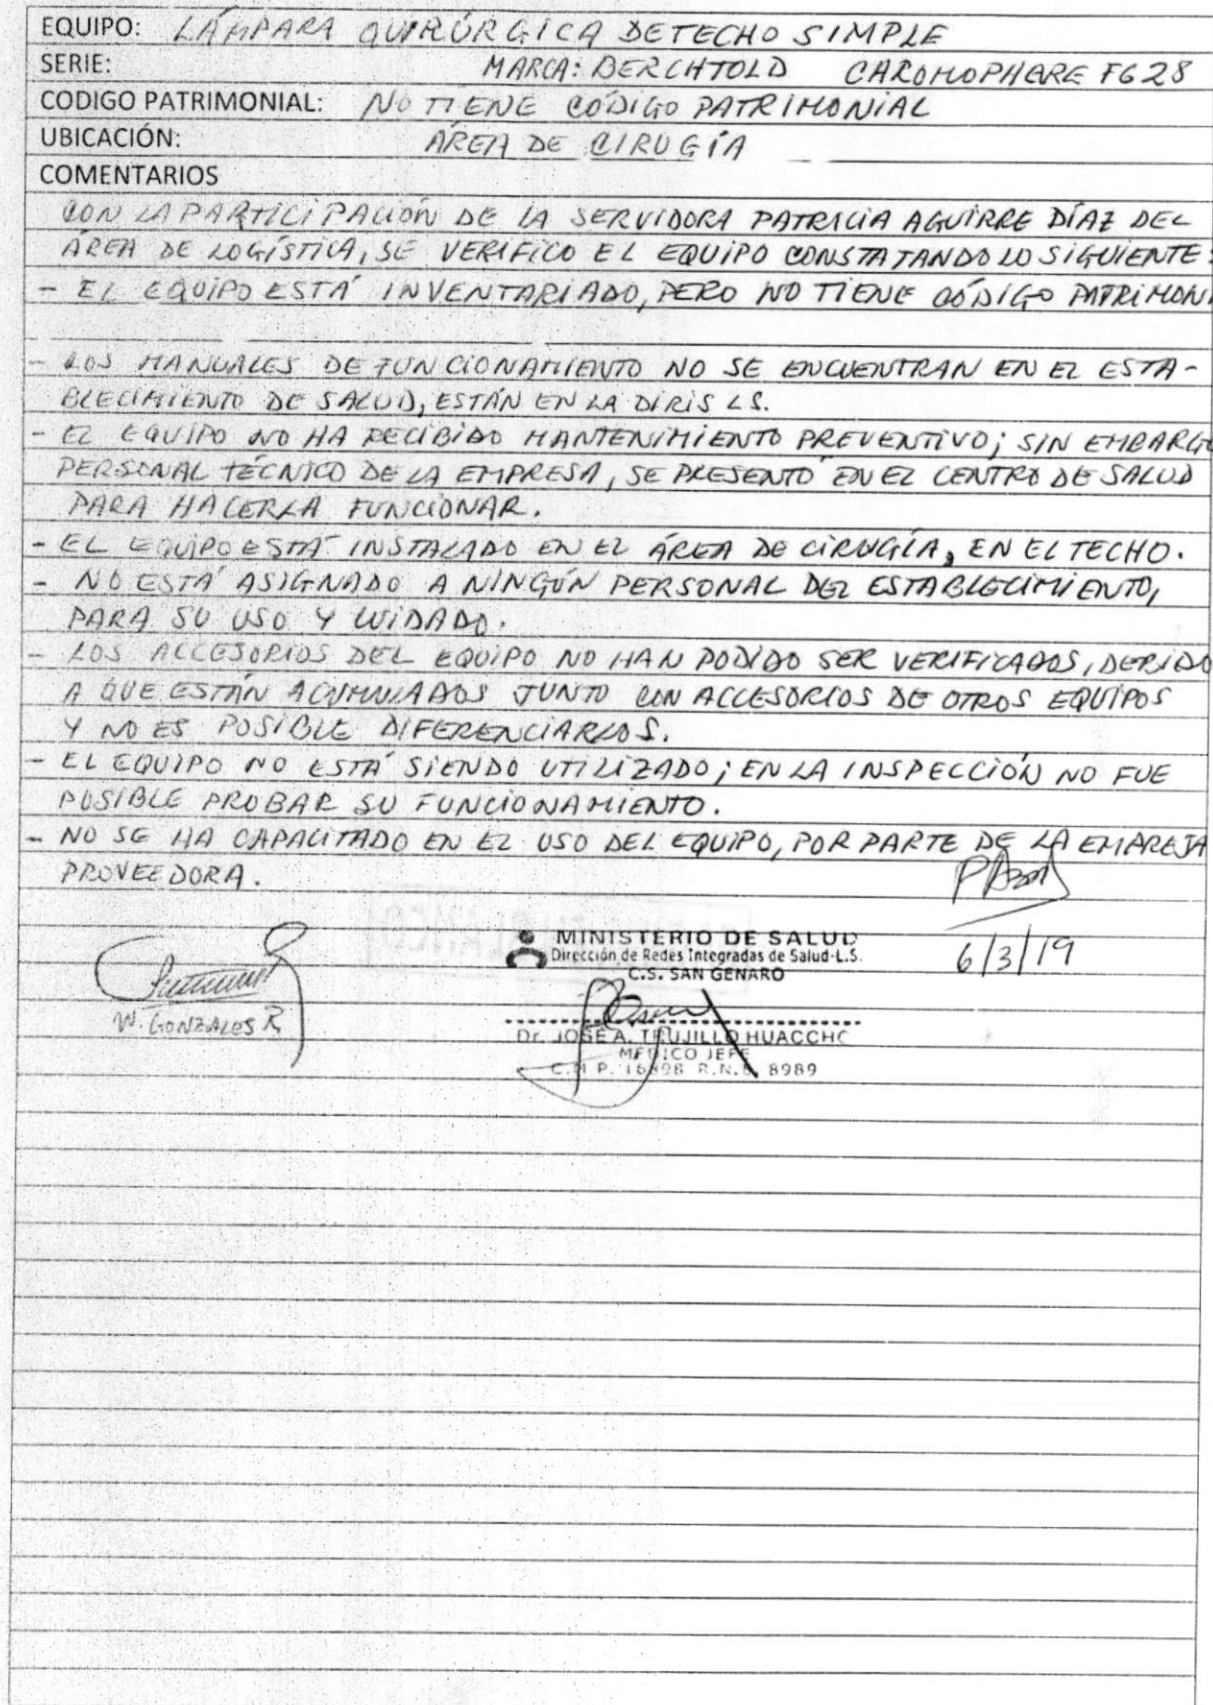 EQUIPO: LÁMPARA QUIRÚRGICA DE TECHO SIMPLE
SERIE: MARCA: BERCHTOLD CAROMOPHARE F628
CODIGO PATRIMONIAL: NO TIENE CÓDIGO PATRIMONIAL
UBICACIÓN: ÁREA DE CIRUGÍA
COMENTARIOS
CON LA PARTICIPACIÓN DE LA SERVIDORA PATRICIA AGUIRRE DÍAZ DEL
ÁREA DE LOGÍSTICA, SE VERIFICO EL EQUIPO CONSTATANDO LO SIGUIENTE:
- EL EQUIPO ESTÁ INVENTARIADO, PERO NO TIENE CÓDIGO PATRIMONI
- LOS MANUALES DE FUNCIONAMIENTO NO SE ENCUENTRAN EN EL ESTA-
BLECIMIENTO DE SALUD, ESTÁN EN LA DIRIS LS.
- EL EQUIPO NO HA RECIBIDO MANTENIMIENTO PREVENTIVO; SIN EMBARGO
PERSONAL TÉCNICO DE LA EMPRESA, SE PRESENTÓ EN EL CENTRO DE SALUD
PARA HACERLA FUNCIONAR.
- EL EQUIPO ESTÁ INSTALADO EN EL ÁREA DE CIRUGÍA, EN EL TECHO.
- NO ESTÁ ASIGNADO A NINGÚN PERSONAL DEL ESTABLECIMIENTO,
PARA SU USO Y CUIDADO.
- LOS ACCESORIOS DEL EQUIPO NO HAN PODIDO SER VERIFICADOS, DEBIDO
A QUE ESTÁN ACUMULADOS JUNTO CON ACCESORIOS DE OTROS EQUIPOS
Y NO ES POSIBLE DIFERENCIARLOS.
- EL EQUIPO NO ESTÁ SIENDO UTILIZADO; EN LA INSPECCIÓN NO FUE
POSIBLE PROBAR SU FUNCIONAMIENTO.
- NO SE HA CAPACITADO EN EL USO DEL EQUIPO, POR PARTE DE LA EMPRESA
PROVEEDORA.
MINISTERIO DE SALUD
Dirección de Redes Integradas de Salud-L.S.
C.S. SAN GENARO
6/3/19
W. GONZALES R.
Dr. JOSÉ A. TRUJILLO HUACCHO
MEDICO JEFE
C.M.P. 16898 R.N.E. 8989